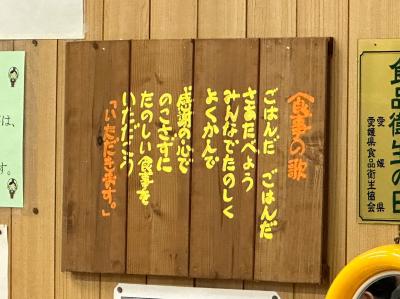 食事の歌
ごはんだ ごはんだ
さあたべよう
みんなでたのしく
よくかんで
感謝の心で
のこさずに
たのしい食事を
いただこう
「いただきます。」
食品衛生の日
愛媛県
愛媛県食品衛生協会
は、
す。